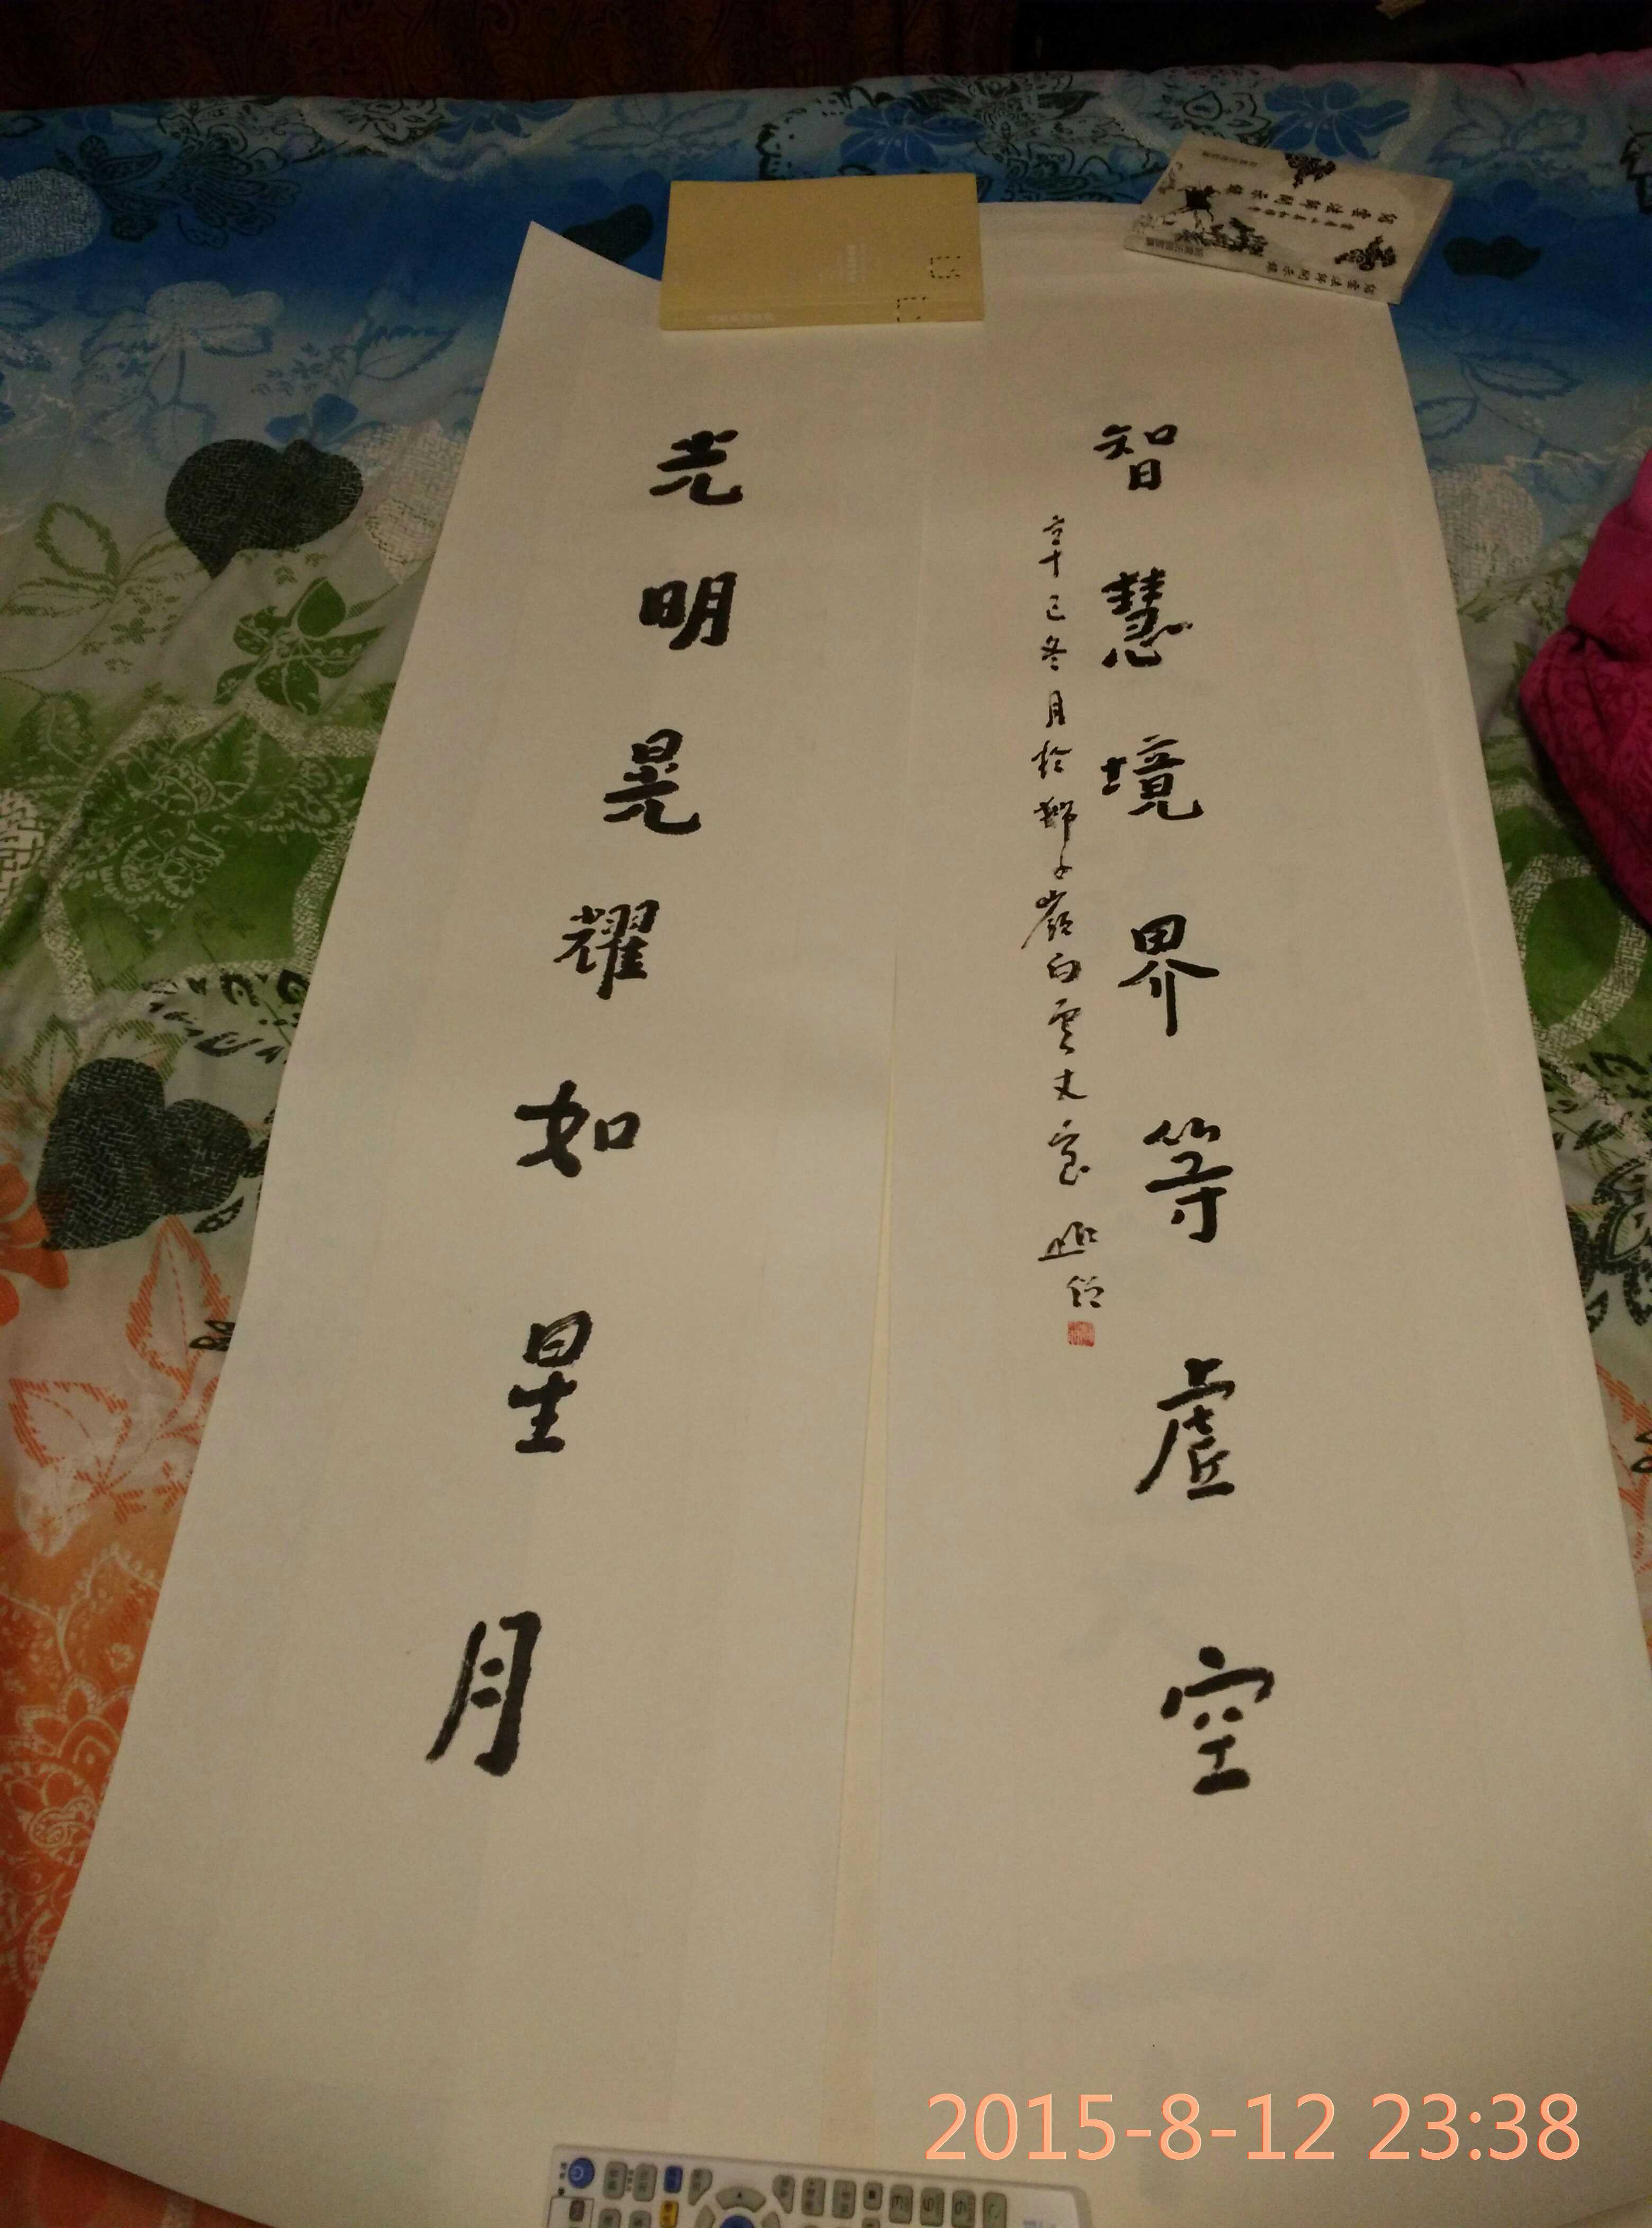 智慧境界等虛空
辛巳冬月於獅子巖白雲丈室
光明晃耀如星月
2015-8-12 23:38